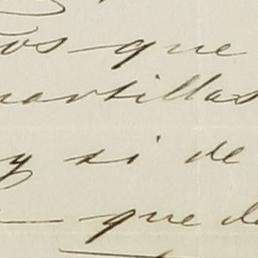 os que
uartillas
y si de
que de